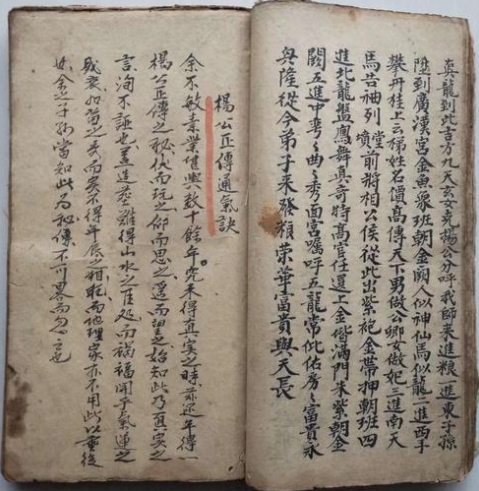 真龍到此吉方九天玄女楊公分呼我師來進粮一進東子孫
陞到廣漢宮金魚眾班朝金闕人似神仙馬似龍二進西手
攀丹桂上云梯姓名價高傳天下男做公卿女做妃三進南天
馬列堂前將相公侯從此出紫袍金帶押朝班四
進北龍盤鳳舞真奇特高官任選上金階滿門朱紫朝金
闕五進中彎々曲々秀面宮囑呼五龍常此佑房々富貴永
興隆從今弟子来發荣華富貴與天長
楊公正傳通氣訣
余不敏素業堪輿数十餘年究未得真实之時兹近年得一
楊公正傳之秘伏而玩之仰而思之遥而望之始知此乃真实之
言洵不誣也蓋造葬雖得山水之佳处而禍福関乎氣運之
盛衰如苗之美而实不得年辰以相而地理家亦不用此以垂後
世子孙當知此为秘傳不可畧而之也